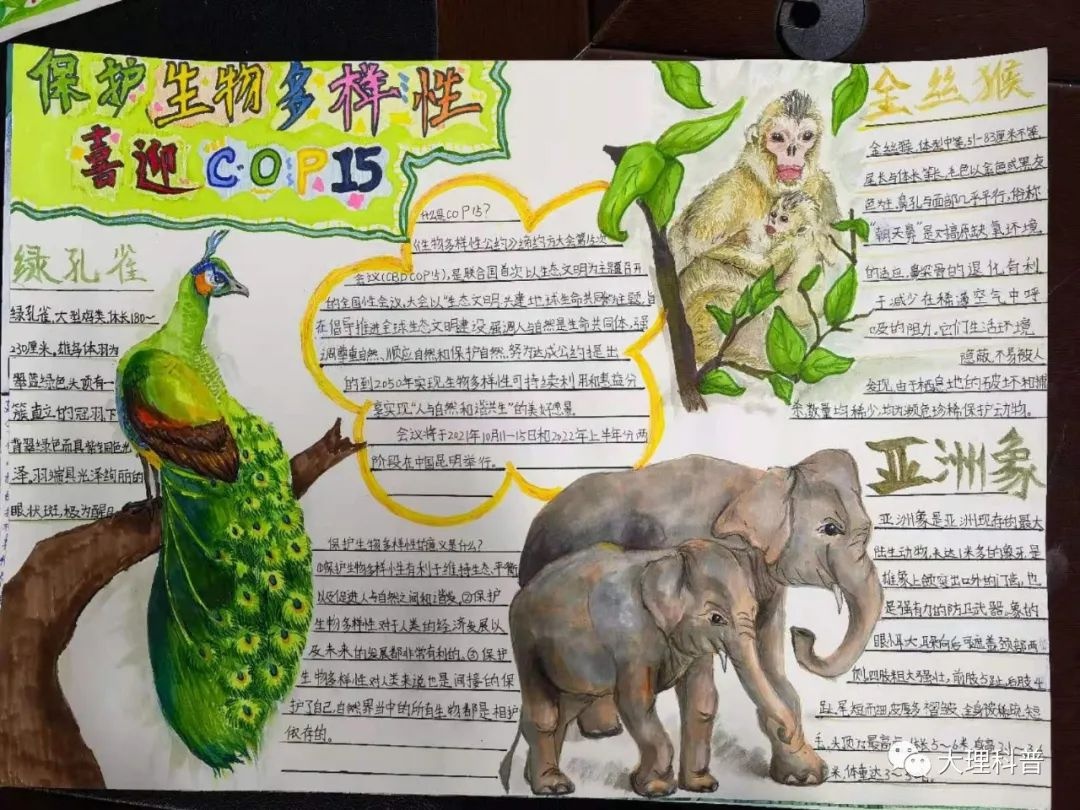 保护生物多样性
喜迎COP15
绿孔雀
绿孔雀,大型鸡类,体长180~
230厘米。雄鸟体羽为
翠蓝绿色,头顶有一
簇直立的冠羽,下
背翠绿色而具紫铜色光
泽。羽端具光泽绚丽的
眼状斑,极为醒目
什么是COP15?
《生物多样性公约》缔约方大会第15次
会议(CBDCOP15),是联合国首次以生态文明为主题召开
的全国性会议,大会以“生态文明:共建地球生命共同体”为主题,旨
在倡导推进全球生态文明建设,强调人与自然是生命共同体,强
调尊重自然、顺应自然和保护自然,努力达成公约提出
的到2050年实现生物多样性可持续利用和惠益分
享,实现“人与自然和谐共生”的美好愿景。
会议将于2021年10月11-15日和2022年上半年分两
阶段在中国昆明举行。
保护生物多样性的意义是什么?
①保护生物多样性有利于维持生态平衡
以及促进人与自然之间和谐发。②保护
生物多样性对于人类的经济发展以
及未来的发展都非常有利的。③保护
生物多样性对人类来说也是间接的保
护了自己,自然界当中的所有生物都是相护
依存的。
金丝猴
金丝猴,体型中等,51-83厘米不等,
尾长与体长等长,毛色以金色或黑灰
色为主,鼻孔与面部几乎平行,俗称
“朝天鼻”是对高原缺氧环境
的适应,鼻梁骨的退化有利
于减少在稀薄空气中呼
吸的阻力。它们生活环境
隐蔽,不易被人
发现,由于栖息地的破坏和捕
杀,数量均稀少,均为濒危珍稀保护动物。
亚洲象
亚洲象是亚洲现存的最大
陆生动物,长达1米多的象牙,是
雄象上颌突出口外的门齿,也
是强有力的防卫武器,象的
眼小耳大,耳朵向后可遮盖颈部两
侧,四肢粗大强壮,前肢5趾,后肢4
趾,尾短而细,皮厚多褶皱,全身被稀疏短
毛,头顶为最高点,体长5~6米,
米,体重达3~
大理科普